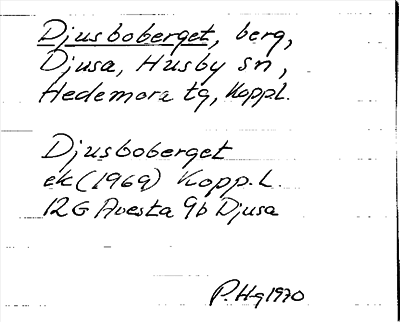 Djusboberget, berg,
Djusa, Husby sn,
Hedemora tg, Koppl.
Djusboberget
ek (1969) Kopp. L.
12G Avesta 9b Djusa
P. Hg 1970